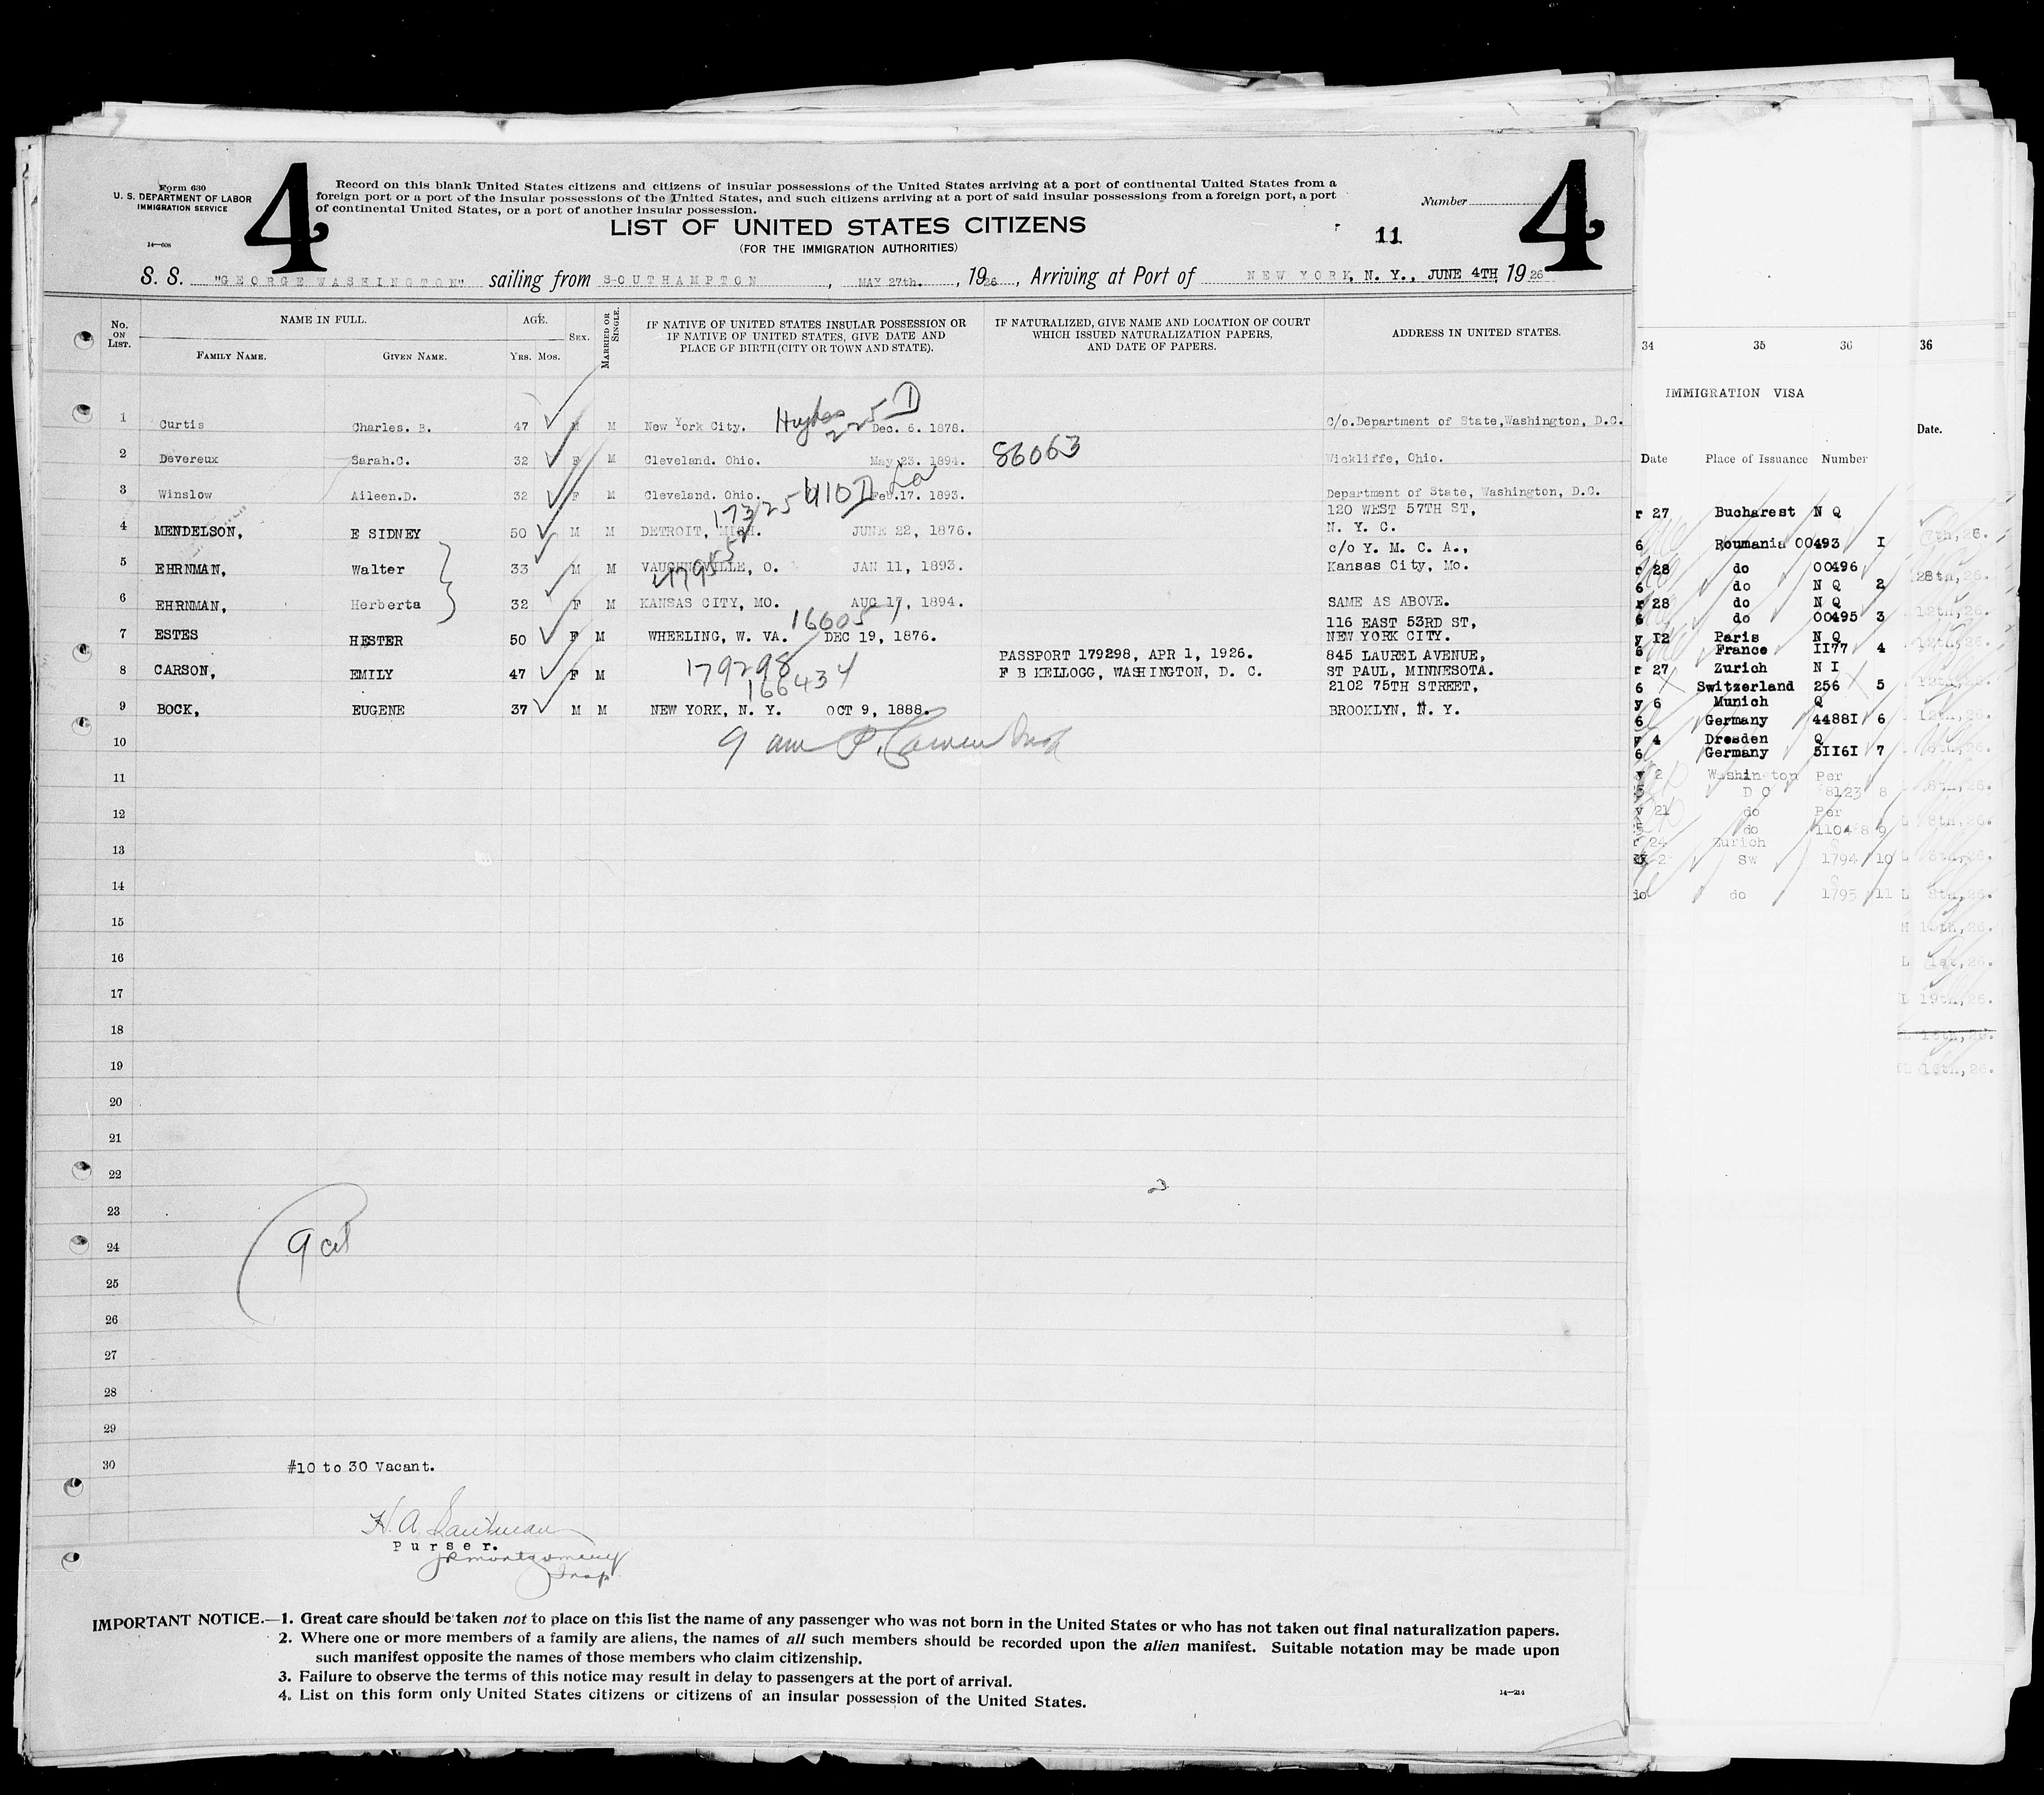 Form 630
U. S. DEPARTMENT OF LABOR
IMMIGRATION SERVICE
14—608
4
Record on this blank United States citizens and citizens of insular possessions of the United States arriving at a port of continental United States from a
foreign port or a port of the insular possessions of the United States, and such citizens arriving at a port of said insular possessions from a foreign port, a port
of continental United States, or a port of another insular possession.
Number
4
LIST OF UNITED STATES CITIZENS
(FOR THE IMMIGRATION AUTHORITIES)
11
S. S. "GEORGE WASHINGTON" sailing from SOUTHAMPTON, MAY 27th., 1926, Arriving at Port of NEW YORK, N. Y., JUNE 4TH, 1926
No. ON LIST. NAME IN FULL. AGE. SEX. MARRIED OR SINGLE. IF NATIVE OF UNITED STATES INSULAR POSSESSION OR IF NATIVE OF UNITED STATES, GIVE DATE AND PLACE OF BIRTH (CITY OR TOWN AND STATE). IF NATURALIZED, GIVE NAME AND LOCATION OF COURT WHICH ISSUED NATURALIZATION PAPERS, AND DATE OF PAPERS. ADDRESS IN UNITED STATES.
FAMILY NAME. GIVEN NAME. YRS. MOS.
1 Curtis Charles. B. 47 M M New York City. Dec. 6. 1878. C/o.Department of State,Washington, D.C.
225 D
2 Devereux Sarah.C. 32 F M Cleveland. Ohio. May 23. 1894. 86063 Wickliffe, Ohio.
3 Winslow Aileen.D. 32 F M Cleveland. Ohio. Feb.17. 1893. Department of State, Washington, D.C.
410 D
173725
120 WEST 57TH ST,
4 MENDELSON, E SIDNEY 50 M M DETROIT, MICH. JUNE 22, 1876. N. Y. C.
c/o Y. M. C. A.,
5 EHRNMAN, Walter 33 M M VAUGHNSVILLE, O. JAN 11, 1893. Kansas City, Mo.
6 EHRNMAN, Herberta 32 F M KANSAS CITY, MO. AUG 17, 1894. SAME AS ABOVE.
116 EAST 53RD ST,
7 ESTES HESTER 50 F M WHEELING, W. VA. DEC 19, 1876. NEW YORK CITY.
PASSPORT 179298, APR 1, 1926. 845 LAUREL AVENUE,
8 CARSON, EMILY 47 F M 179298 F B KELLOGG, WASHINGTON, D. C. ST PAUL, MINNESOTA.
166434 2102 75TH STREET,
9 BOCK, EUGENE 37 M M NEW YORK, N. Y. OCT 9, 1888. BROOKLYN, N. Y.
10
11
12
13
14
15
16
17
18
19
20
21
22
23
24 9 cit
25
26
27
28
29
30 #10 to 30 Vacant.
Purser.
Insp.
IMPORTANT NOTICE.—1. Great care should be taken not to place on this list the name of any passenger who was not born in the United States or who has not taken out final naturalization papers.
2. Where one or more members of a family are aliens, the names of all such members should be recorded upon the alien manifest. Suitable notation may be made upon
such manifest opposite the names of those members who claim citizenship.
3. Failure to observe the terms of this notice may result in delay to passengers at the port of arrival.
4. List on this form only United States citizens or citizens of an insular possession of the United States.
14—214
34 35 36
IMMIGRATION VISA
Date Place of Issuance Number
r 27 Bucharest N Q
6 Roumania 00493 I
r 28 do 00496
6 do N Q 2
r 28 do N Q
6 do 00495 3
y 12 Paris N Q
6 France II77 4
r 27 Zurich N I
6 Switzerland 256 5
y 6 Munich Q
6 Germany 4488I 6
y 4 Dresden Q
6 Germany 5II6I 7
2 Washington Per
D C 8123 8
21 do Per
do 11048 9
24 Zurich
Sw 1794 10
do do 1795 11
36
Date.
28th,26.
12th,26.
12th,26.
12th,26.
12th,26.
8th,26.
8th,26.
L 8th,26.
L 8th,26.
L 8th,26.
L 1st,26.
L 19th,26.